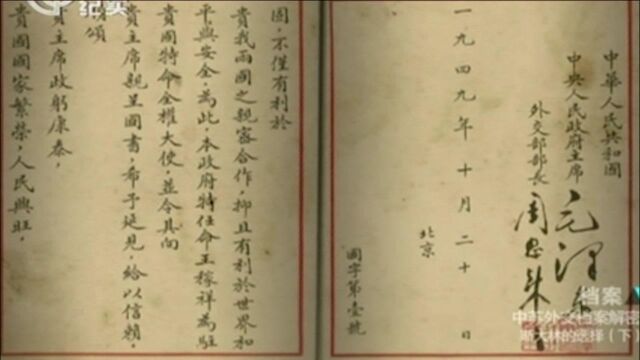 纪实
中華人民共和國
中央人民政府主席
毛澤东
外交部部長
周恩來
一九四九年十月二十日
北京
國字第壹號
國，不僅有利於
貴我兩國之親密合作，抑且有利於世界和
平與安全。為此，本政府特任命王稼祥為駐
貴國特命全權大使，並令其向
貴主席親呈國書，希予延見，給以信賴，
頌
貴主席政躬康泰，
貴國國家繁榮，人民興旺，
档案
中苏外交档案解密
斯大林的选择（下）